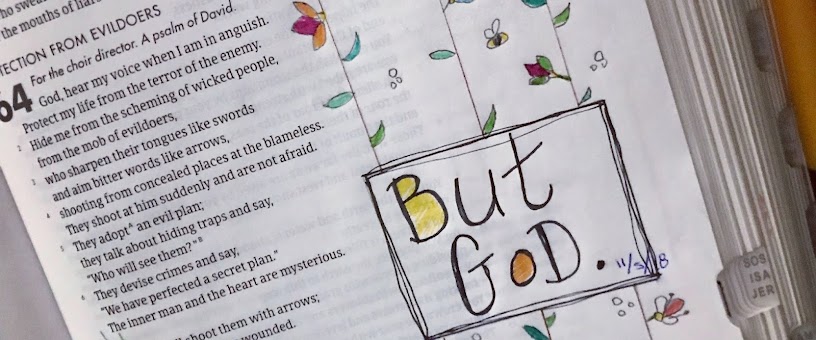 the mouths of
TECTION FROM EVILDOERS
64 For the choir director. A psalm of David.
God, hear my voice when I am in anguish.
Protect my life from the terror of the enemy.
2 Hide me from the scheming of wicked people,
from the mob of evildoers,
3 who sharpen their tongues like swords
and aim bitter words like arrows,
4 shooting from concealed places at the blameless.
They shoot at him suddenly and are not afraid.
5 They adopt^A an evil plan;
they talk about hiding traps and say,
"Who will see them?"^B
6 They devise crimes and say,
"We have perfected a secret plan."
The inner man and the heart are mysterious.
shoot them with arrows;
wounded.
But
GoD.
SOS
ISA
JER